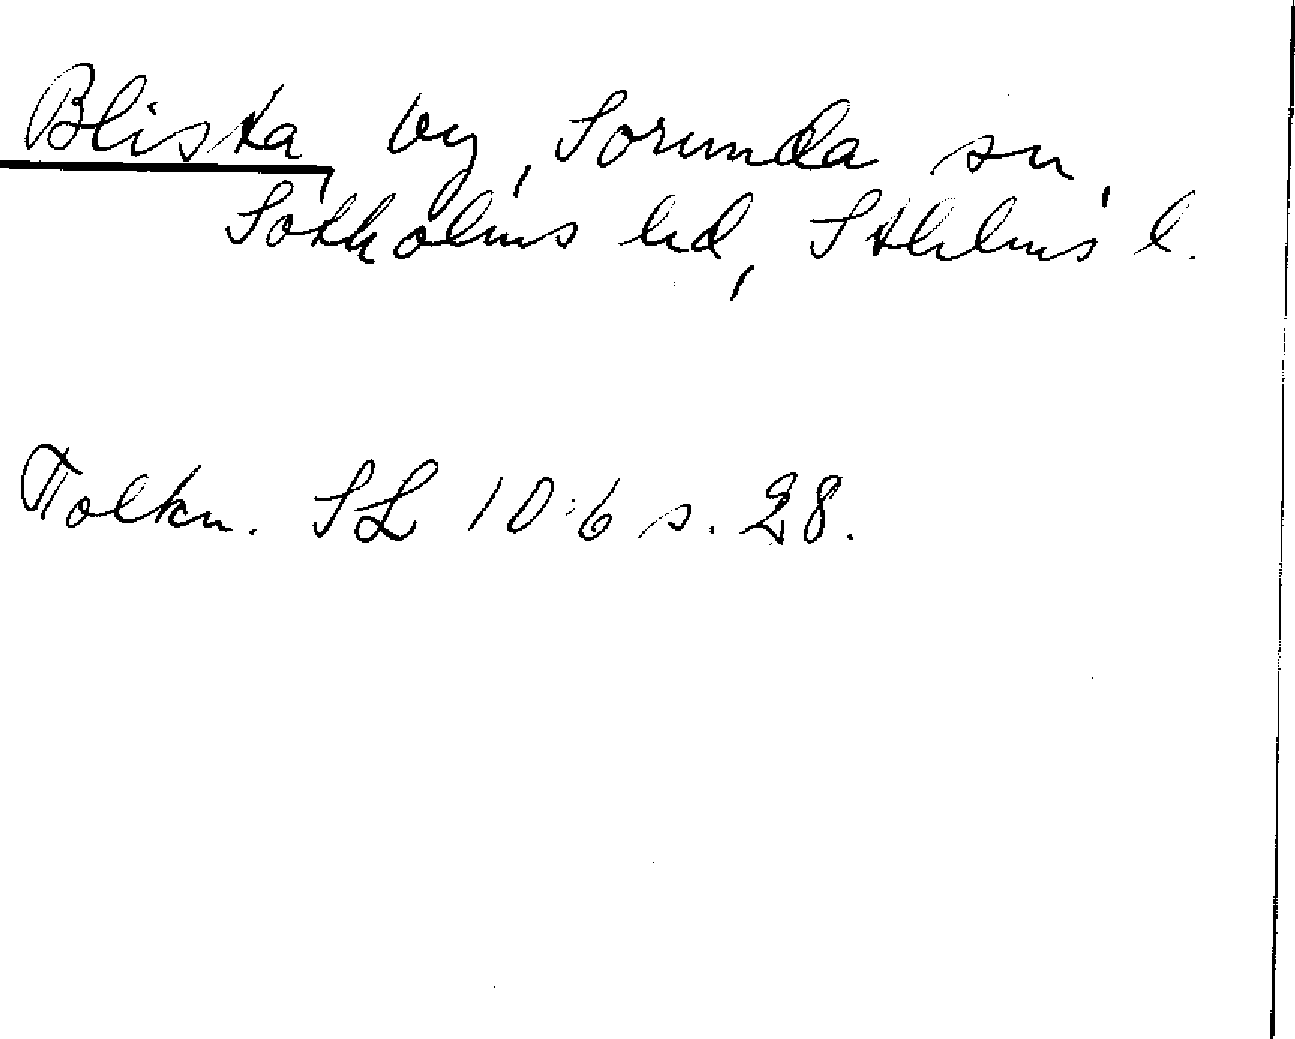 Blista, by, Sorunda sn,
Sotholms hd, Sthlms l.
Tolkn. SL 10:6 s. 28.